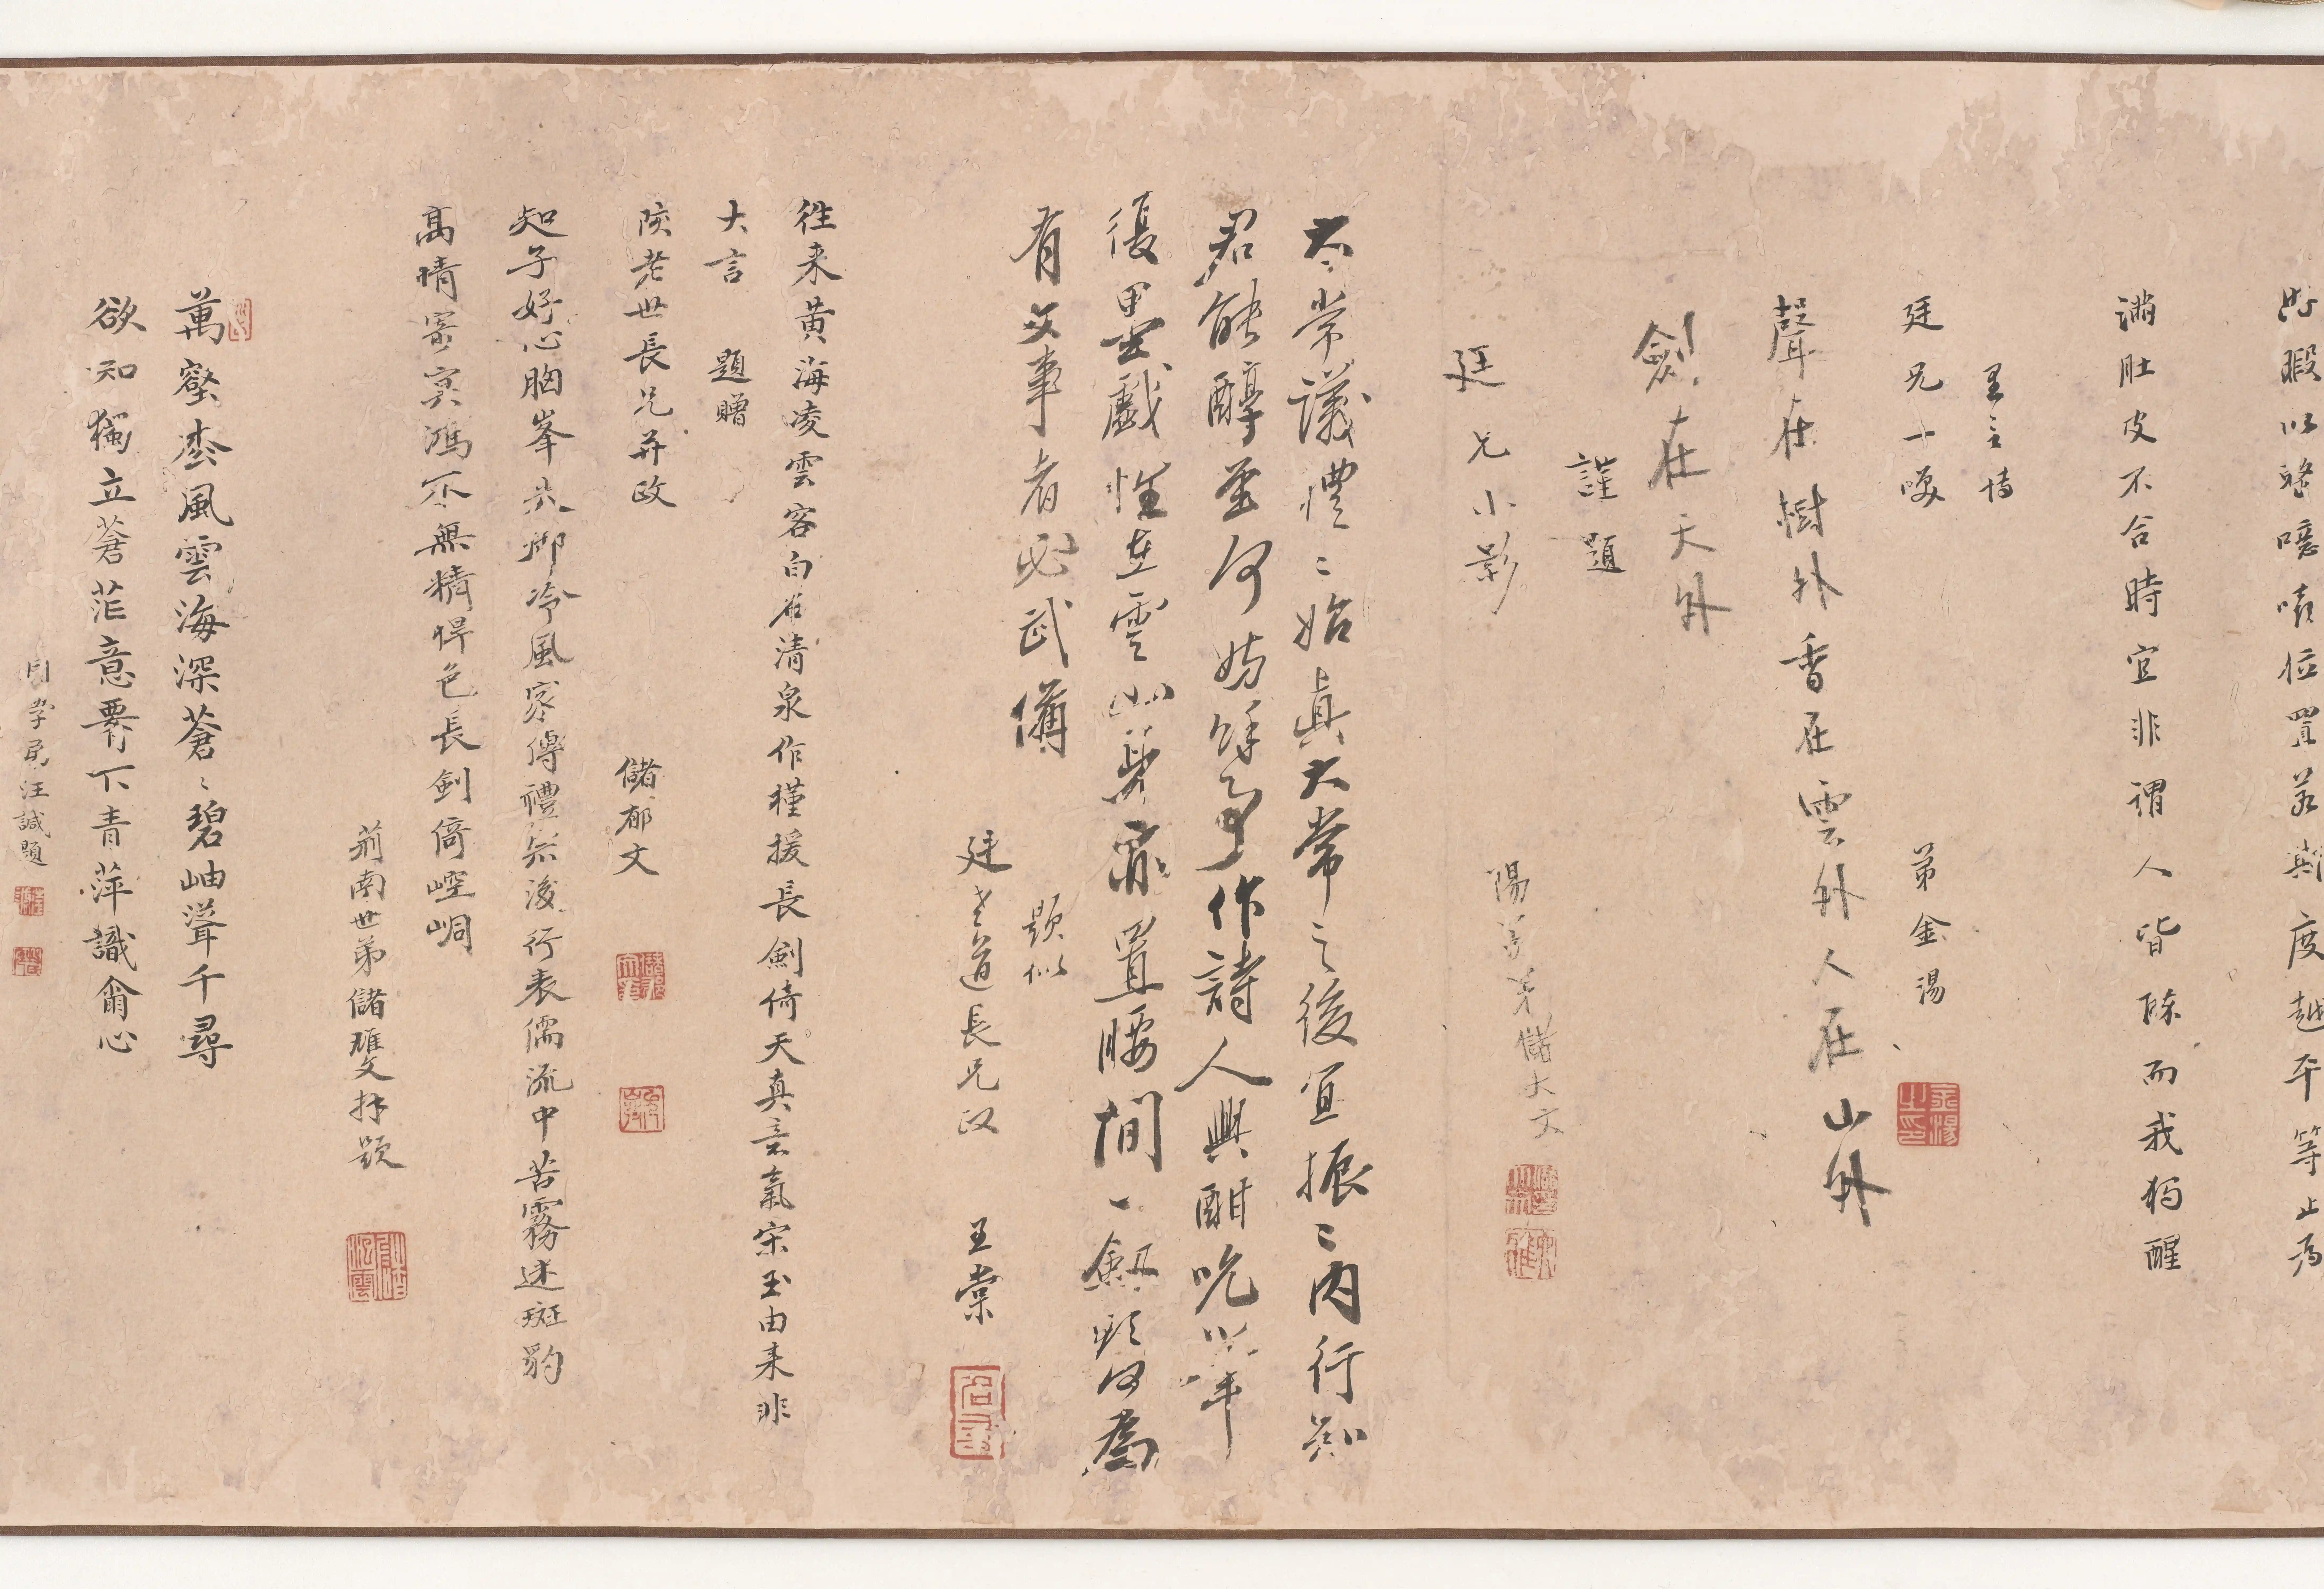 瑕以
位置若
度越平等止為
滿肚皮不合時宜非謂人皆醉而我獨醒
廷兄一噱
弟金湯
聲在樹外香在雲外人在山外
劍在天外
謹題
廷兄小影
陽羨弟儲大文
太常議禮〻始真太常之後宜振〻內行知
君能醇至何妨餘事作詩人興酣吮筆
復墨戲性在雲山發齋置腰間一劍縣何為
有文事者必武備
題似
廷老道長兄政
王棠
往來黃海凌雲客白石清泉作槿援長劍倚天真意氣宋玉由來非
大言 題贈
陔老世長兄并政
儲郁文
知子好心胸峯共腳冷風家傳禮無後行表儒流中苦霧迷斑豹
高晴寥寞鴻不無精悍色長劍倚崆峒
荊南世弟儲雄文拜題
萬壑松風雲海深蒼〻碧岫聳千尋
欲知獨立蒼茫意匣下青萍識爾心
同學弟汪誠題